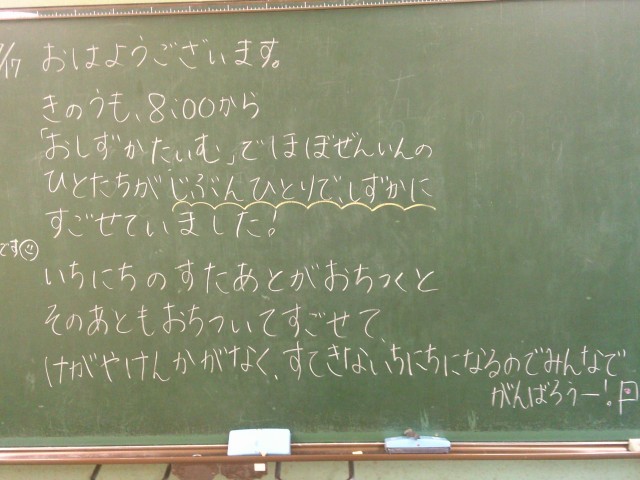 /17 おはようございます。
きのうも、8:00から
「おしずかたいむ」でほぼぜんいんの
ひとたちがじぶんひとりで、しずかに
すごせていました!
です
いちにちのすたあとがおちつくと
そのあともおちついてすごせて、
けがやけんかがなく、すてきないちにちになるのでみんなで
がんばろうー!